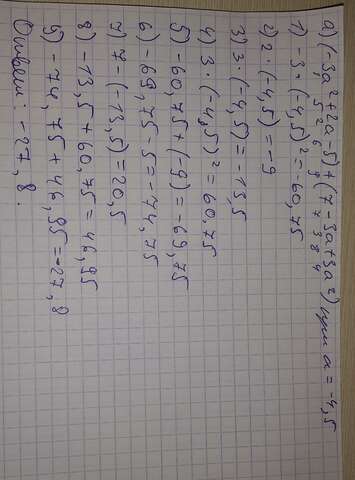 а) (-3а²+2а-5)+(7-3а+3а²) при а = -4,5
5 2 6 9 7 3 8 4
1) -3·(-4,5)²=-60,75
2) 2·(-4,5)=-9
3) 3·(-4,5)=-13,5
4) 3·(-4,5)²=60,75
5) -60,75+(-9)=-69,75
6) -69,75-5=-74,75
7) 7-(-13,5)=20,5
8) -13,5+60,75=46,95
9) -74,75+46,95=-27,8
Ответ: -27,8.